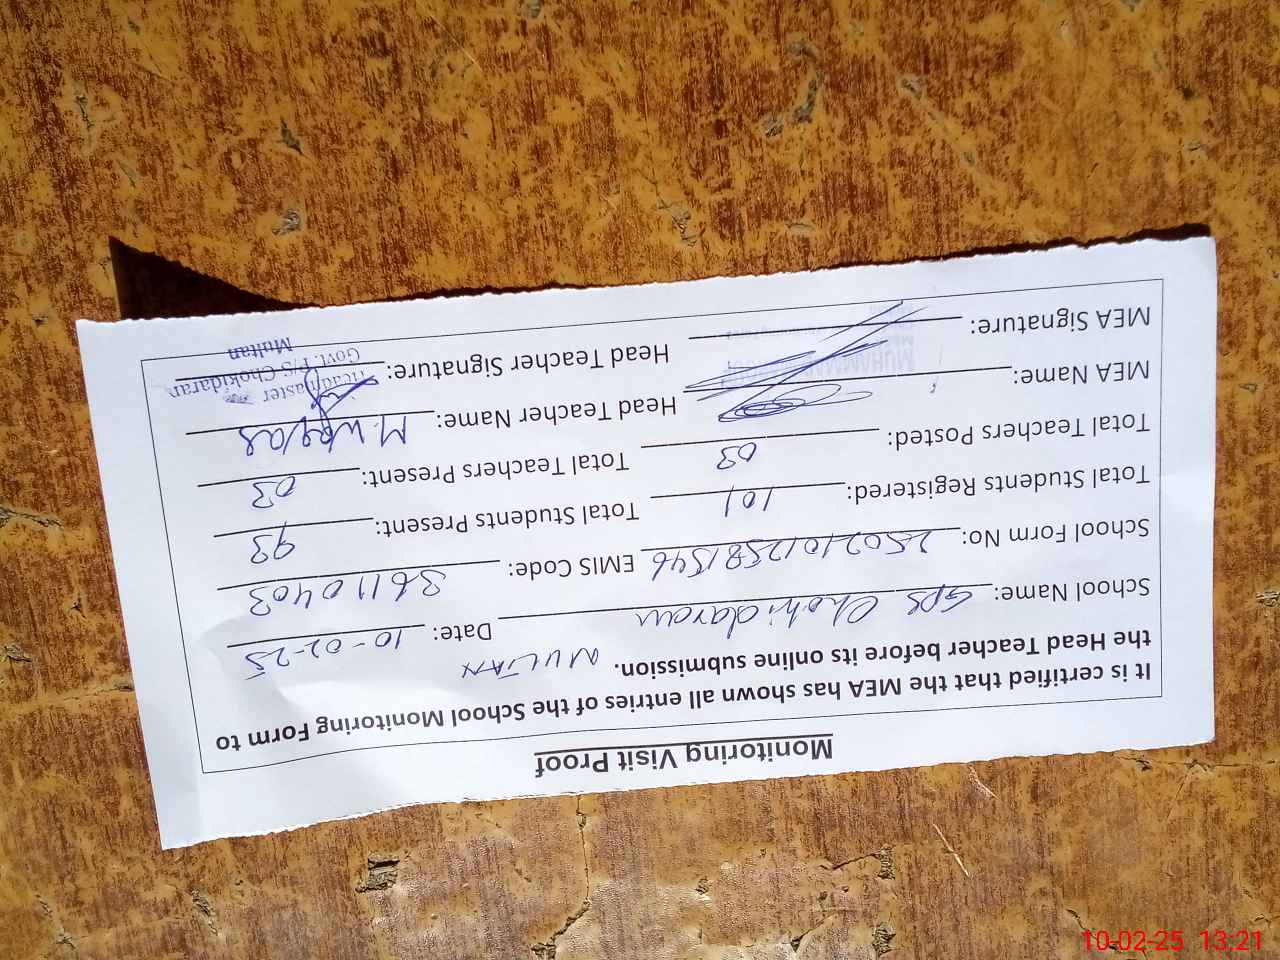 Monitoring Visit Proof
It is certified that the MEA has shown all entries of the School Monitoring Form to
the Head Teacher before its online submission. MULTAN
School Name: GPS Chokidaran Date: 10-02-25
School Form No: 25021012581546 EMIS Code: 36110403
Total Students Registered: 101 Total Students Present: 93
Total Teachers Posted: 03 Total Teachers Present: 03
MEA Name: Head Teacher Name: M. Waqas
MEA Signature: Head Teacher Signature:
Headmaster
Govt. P/S Chokidaran
Multan
10-02-25 13:21